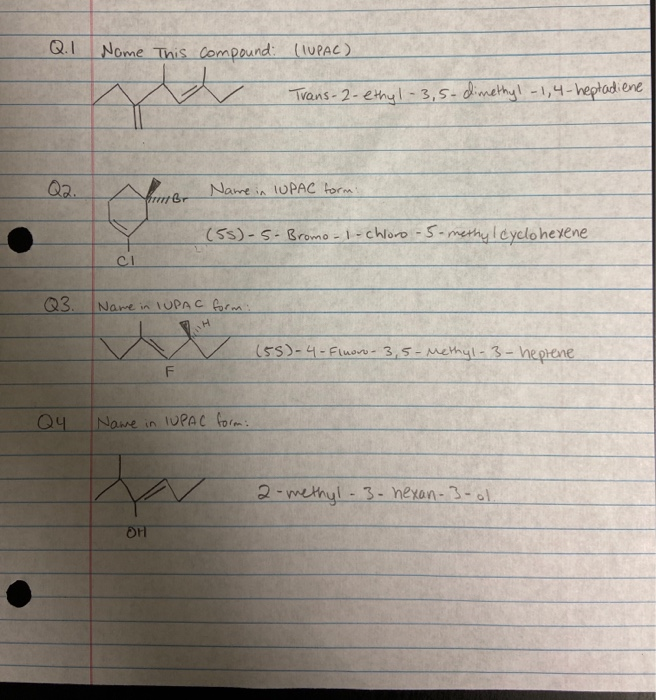 Q.1 Name This Compound: (IUPAC)
Trans-2-ethyl-3,5-dimethyl-1,4-heptadiene
Q2. Name in IUPAC form:
Br
(5S)-5-Bromo-1-chloro-5-methylcyclohexene
Cl
Q3. Name in IUPAC form:
H
(5S)-4-Fluoro-3,5-Methyl-3-heptene
F
Q4 Name in IUPAC form:
2-methyl-3-hexan-3-ol
OH